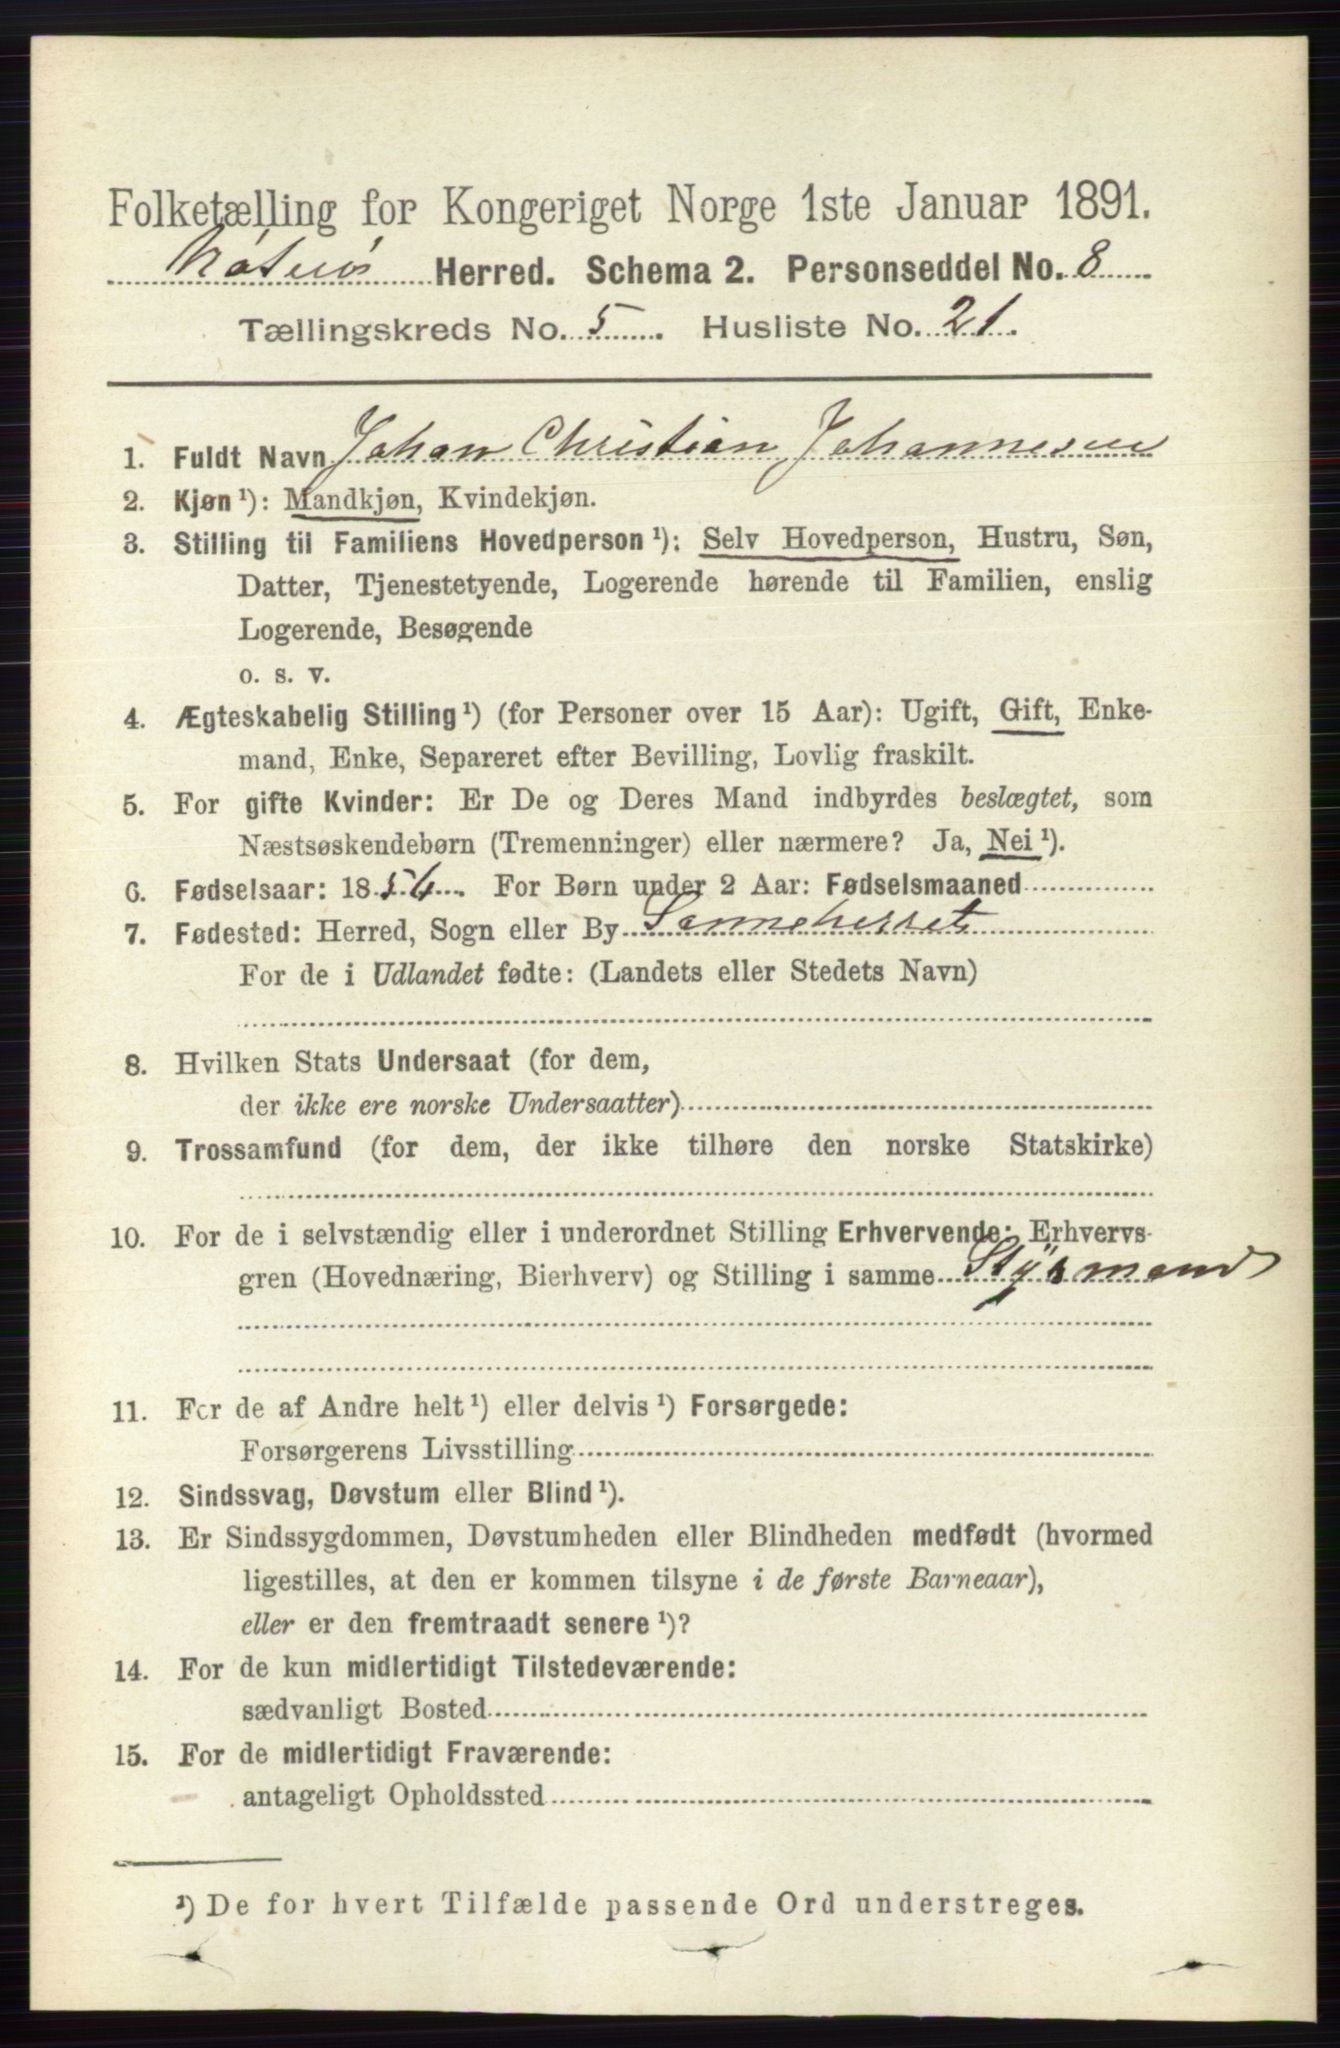 Folketælling for Kongeriget Norge 1ste Januar 1891.
Nøterø Herred. Schema 2. Personseddel No. 8
Tællingskreds No. 5. Husliste No. 21.
1. Fuldt Navn Johan Christian Johannesen
2. Kjøn ¹): Mandkjøn, Kvindekjøn.
3. Stilling til Familiens Hovedperson ¹): Selv Hovedperson, Hustru, Søn,
Datter, Tjenestetyende, Logerende hørende til Familien, enslig
Logerende, Besøgende
o. s. v.
4. Ægteskabelig Stilling ¹) (for Personer over 15 Aar): Ugift, Gift, Enke-
mand, Enke, Separeret efter Bevilling, Lovlig fraskilt.
5. For gifte Kvinder: Er De og Deres Mand indbyrdes beslægtet, som
Næstsøskendebørn (Tremenninger) eller nærmere? Ja, Nei ¹).
6. Fødselsaar: 1854. For Børn under 2 Aar: Fødselsmaaned
7. Fødested: Herred, Sogn eller By Sanneherret
For de i Udlandet fødte: (Landets eller Stedets Navn)
8. Hvilken Stats Undersaat (for dem,
der ikke ere norske Undersaatter)
9. Trossamfund (for dem, der ikke tilhøre den norske Statskirke)
10. For de i selvstændig eller i underordnet Stilling Erhvervende: Erhvervs-
gren (Hovednæring, Bierhverv) og Stilling i samme Styrmand
11. For de af Andre helt ¹) eller delvis ¹) Forsørgede:
Forsørgerens Livsstilling
12. Sindssvag, Døvstum eller Blind ¹).
13. Er Sindssygdommen, Døvstumheden eller Blindheden medfødt (hvormed
ligestilles, at den er kommen tilsyne i de første Barneaar),
eller er den fremtraadt senere ¹)?
14. For de kun midlertidigt Tilstedeværende:
sædvanligt Bosted
15. For de midlertidigt Fraværende:
antageligt Opholdssted
¹) De for hvert Tilfælde passende Ord understreges.